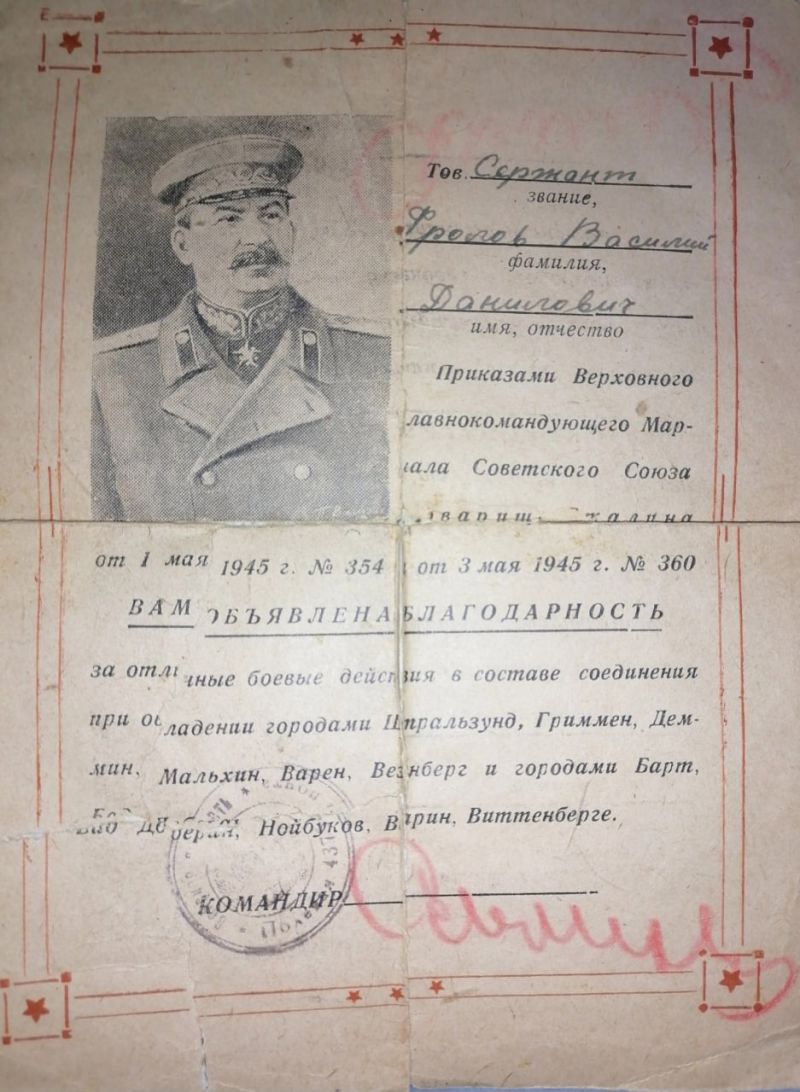 Тов. Сержант
звание,
Фролов Василий
фамилия,
Данилович
имя, отчество
Приказами Верховного
лавнокомандующего Мар-
ала Советского Союза
оварища Сталина
от 1 мая 1945 г. № 354 и от 3 мая 1945 г. № 360
ВАМ ОБЪЯВЛЕНА БЛАГОДАРНОСТЬ
за отличные боевые действия в составе соединения
при овладении городами Штральзунд, Гриммен, Дем-
мин, Мальхин, Варен, Везнберг и городами Барт,
Бад Доберан, Нойбуков, Варин, Виттенберге.
КОМАНДИР